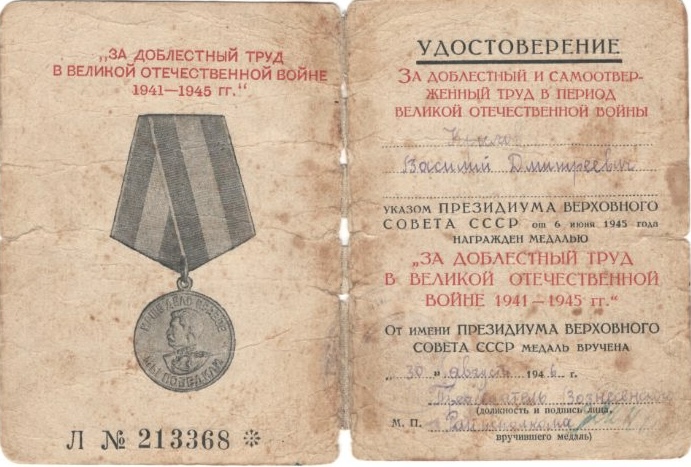 „ЗА ДОБЛЕСТНЫЙ ТРУД
В ВЕЛИКОЙ ОТЕЧЕСТВЕННОЙ ВОЙНЕ
1941—1945 гг.“
НАШЕ ДЕЛО ПРАВОЕ
МЫ ПОБЕДИЛИ
Л № 213368 *
УДОСТОВЕРЕНИЕ
ЗА ДОБЛЕСТНЫЙ И САМООТВЕР-
ЖЕННЫЙ ТРУД В ПЕРИОД
ВЕЛИКОЙ ОТЕЧЕСТВЕННОЙ ВОЙНЫ
Василий Дмитреевич
УКАЗОМ ПРЕЗИДИУМА ВЕРХОВНОГО
СОВЕТА СССР от 6 июня 1945 года
НАГРАЖДЕН МЕДАЛЬЮ
„ЗА ДОБЛЕСТНЫЙ ТРУД
В ВЕЛИКОЙ ОТЕЧЕСТВЕННОЙ
ВОЙНЕ 1941—1945 гг.“
От имени ПРЕЗИДИУМА ВЕРХОВНОГО
СОВЕТА СССР МЕДАЛЬ ВРУЧЕНА
„30 „ август 1946 г.
Вознесенского
(должность и подпись лица,
М. П. Райисполкома
вручившего медаль)